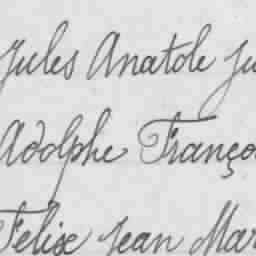 Jules Anatole Ju
Adolphe Franço
Felixe Jean Mar